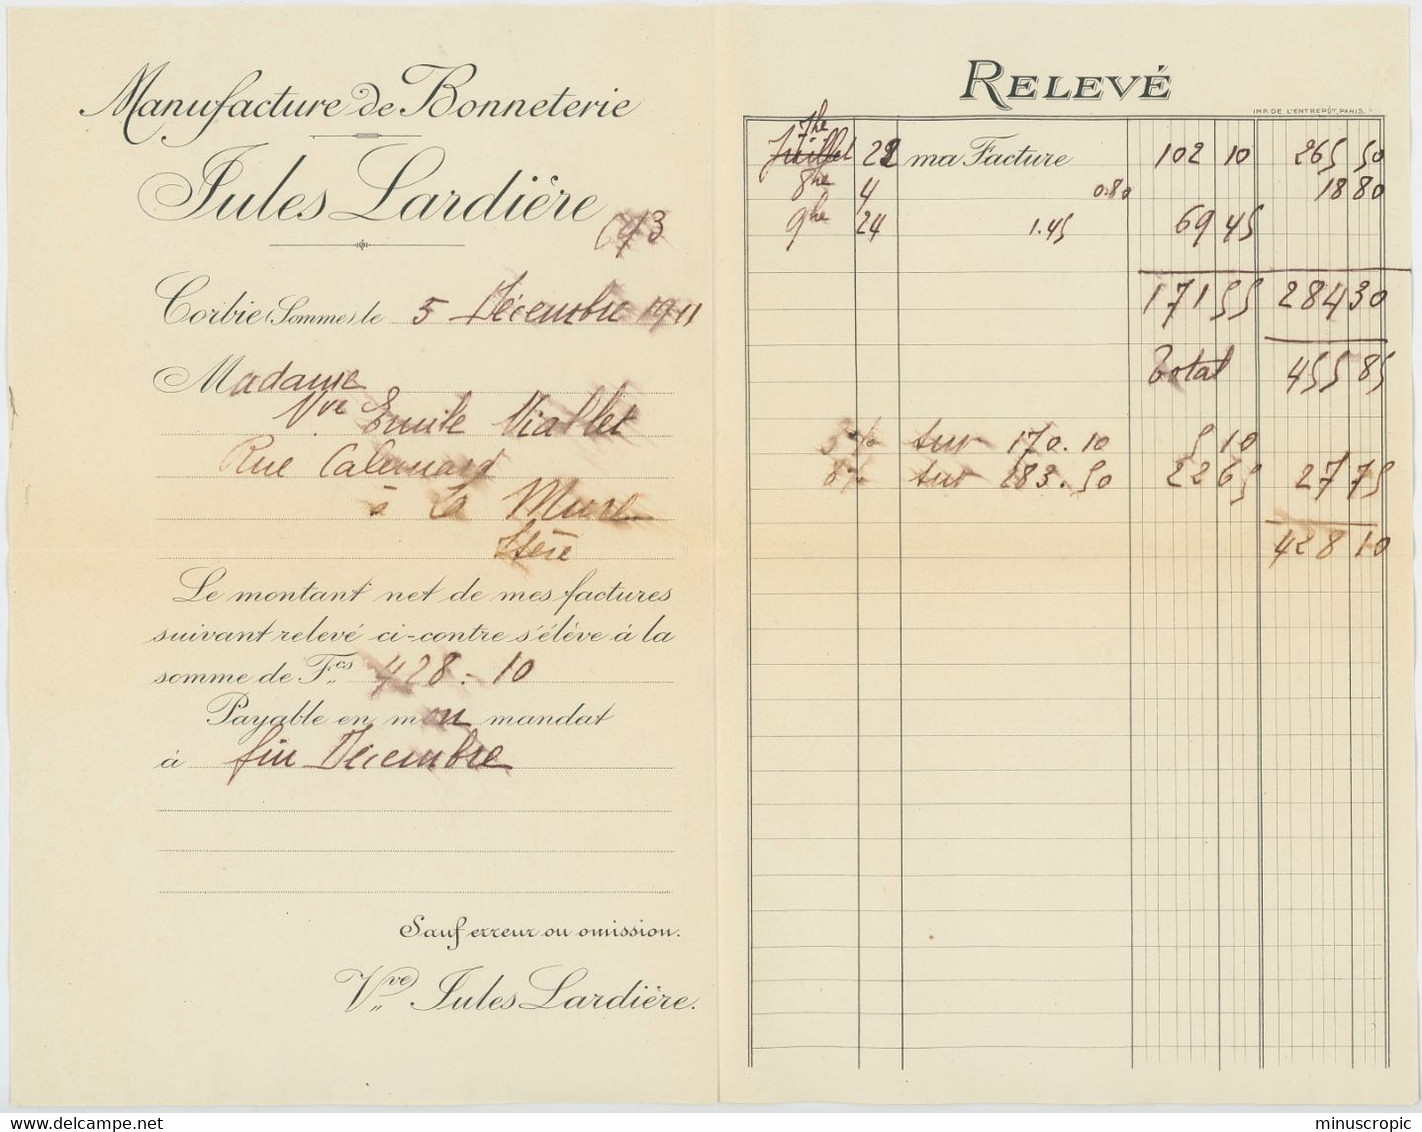 Manufacture de Bonneterie
Jules Lardière
693
Corbie (Somme), le 5 Décembre 1911
Madame
Vve Emile Viallet
Rue Calemard
à La Mure
Isère
Le montant net de mes factures
suivant relevé ci-contre s'élève à la
somme de Fcs 428.10
Payable en mon mandat
à fin Décembre
Sauf erreur ou omission.
Vve Jules Lardière.
RELEVÉ
IMP. DE L'ENTREPÔT, PARIS.
7bre
Juillet 22 ma Facture 102 10 265 50
8bre 4 0.80 18 80
9bre 24 1.45 69 45
171 55 284 30
Total 455 85
3% sur 170.10 5 10
8% sur 283.50 22 65 27 75
428 10
minuscropic
delcampe.net